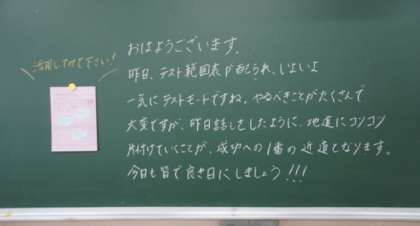 活用して下さい！
おはようございます。
昨日、テスト範囲表が配られ、いよいよ
一気にテストモードですね。やるべきことがたくさんで
大変ですが、昨日話しをしたように、地道にコツコツ
片付けていくことが、成功への1番の近道となります。
今日も皆で良き日にしましょう!!!